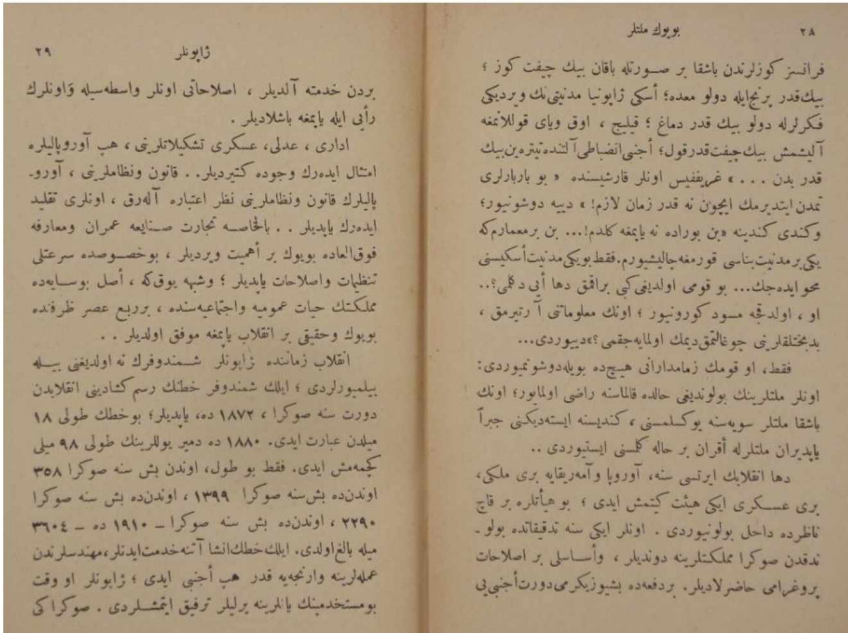 ٢٨
بويوك ملتلر
فرانسز كوزلرندن باشقا بر صورتله باقان بيك چيفت كوز ؛
بيك قدر برنج ايله دولو معده؛ أسكى ژاپونيا مدنيتى نك ويرديكى
فكرلرله دولو بيك قدر دماغ ؛ قيليچ ، اوق وياى قوللانمغه
آليشمش بيك چيفت قدر قول؛ أجنبى انضباطى آلتنده تيتره ين بيك
قدر بدن . . . » غريففيس اونلر قارشيسنده « بو باربارلرى
تمدن ايتديرمك ايچون نه قدر زمان لازم! » دييه دوشونيور؛
وكندى كندينه «بن بوراده نه يايمغه كلدم!... بن بر معمارم كه
يكى بر مدنيت بناسى قورمغه چاليشيورم. فقط بو يكى مدنيت أسكيسنى
محو ايده جك... بو قومى اولديغى كبى براقمق دها أيى دكلمى؟..
او ، اولدقجه مسود كورونيور ؛ اونك معلوماتنى آرتيرمق ،
بدبختلقلرينى چوغالتمق ديمك اولمايه جقمى ؟» دييوردى...
فقط، او قومك زمامدارانى هيچ ده بويله دوشونميوردى:
اونلر ملتلرينك بولونديغى حالده قالماسنه راضى اولمايور؛ اونك
باشقا ملتلر سويه سنه يوكسلمسنى ، كنديسنه ايسته ديكنى جبراً
ياپديران ملتلرله أقران بر حاله كلمسنى ايستيوردى ..
دها انقلابك ايرتسى سنه، آوروپا و آمه ريقايه برى ملكى،
برى عسكرى ايكى هيئت كيتمش ايدى ؛ بو هيأتلره بر قاچ
ناظرده داخل بولونيوردى . اونلر ايكى سنه تدقيقاتده بولو ـ
ندقدن صوكرا مملكتلرينه دونديلر ، وأساسلى بر اصلاحات
پروغرامى حاضرلاديلر. بردفعه ده بشيوز يكرمى دورت أجنبى يى
ژاپونلر
٢٩
بردن خدمته آلديلر ، اصلاحاتى اونلر واسطه سيله واونلرك
رأيى ايله يايمغه باشلاديلر .
ادارى ، عدلى، عسكرى تشكيلاتلرينى ، هپ آوروپاليلره
امتثال ايده رك وجوده كتيرديلر. . قانون ونظاملرينى ، آورو ـ
پاليلرك قانون ونظاملرينى نظر اعتباره آله رق ، اونلرى تقليد
ايده رك ياپديلر . . بالخاصه تجارت صنايعه عمران ومعارفه
فوق العاده بويوك بر أهميت ويرديلر ، بو خصوصده سرعتلى
تنظيمات واصلاحات ياپديلر ؛ وشبهه يوق كه ، أصل بو سايه ده
مملكتك حيات عموميه واجتماعيه سنده ، بر ربع عصر ظرفنده
بويوك وحقيقى بر انقلاب يايمغه موفق اولديلر . .
انقلاب زماننده ژاپونلر شمندوفرك نه اولديغنى بيله
بيلميورلردى ؛ ايلك شمندوفر خطنك رسم كشادينى انقلابدن
دورت سنه صوكرا ، ١٨٧٢ ده، ياپديلر؛ بو خطك طولى ١٨
ميلدن عبارت ايدى. ١٨٨٠ ده دمير يوللرينك طولى ٩٨ ميلى
كچمه مش ايدى. فقط بو طول، اوندن بش سنه صوكرا ٣٥٨
اوندن ده بش سنه صوكرا ١٣٩٩ ، اوندن ده بش سنه صوكرا
٢٢٩٠ ، اوندن ده بش سنه صوكرا ـ ١٩١٠ ده ـ ٣٦٠٤
ميله بالغ اولدى. ايلك خطك انشا آتنه خدمت ايدنلر، مهندسلرندن
عمله لرينه وارنجه يه قدر هپ أجنبى ايدى ؛ ژاپونلر او وقت
بو مستخدمينك يانلرينه يرليلر ترفيق ايتمشلردى . صوكرا كى